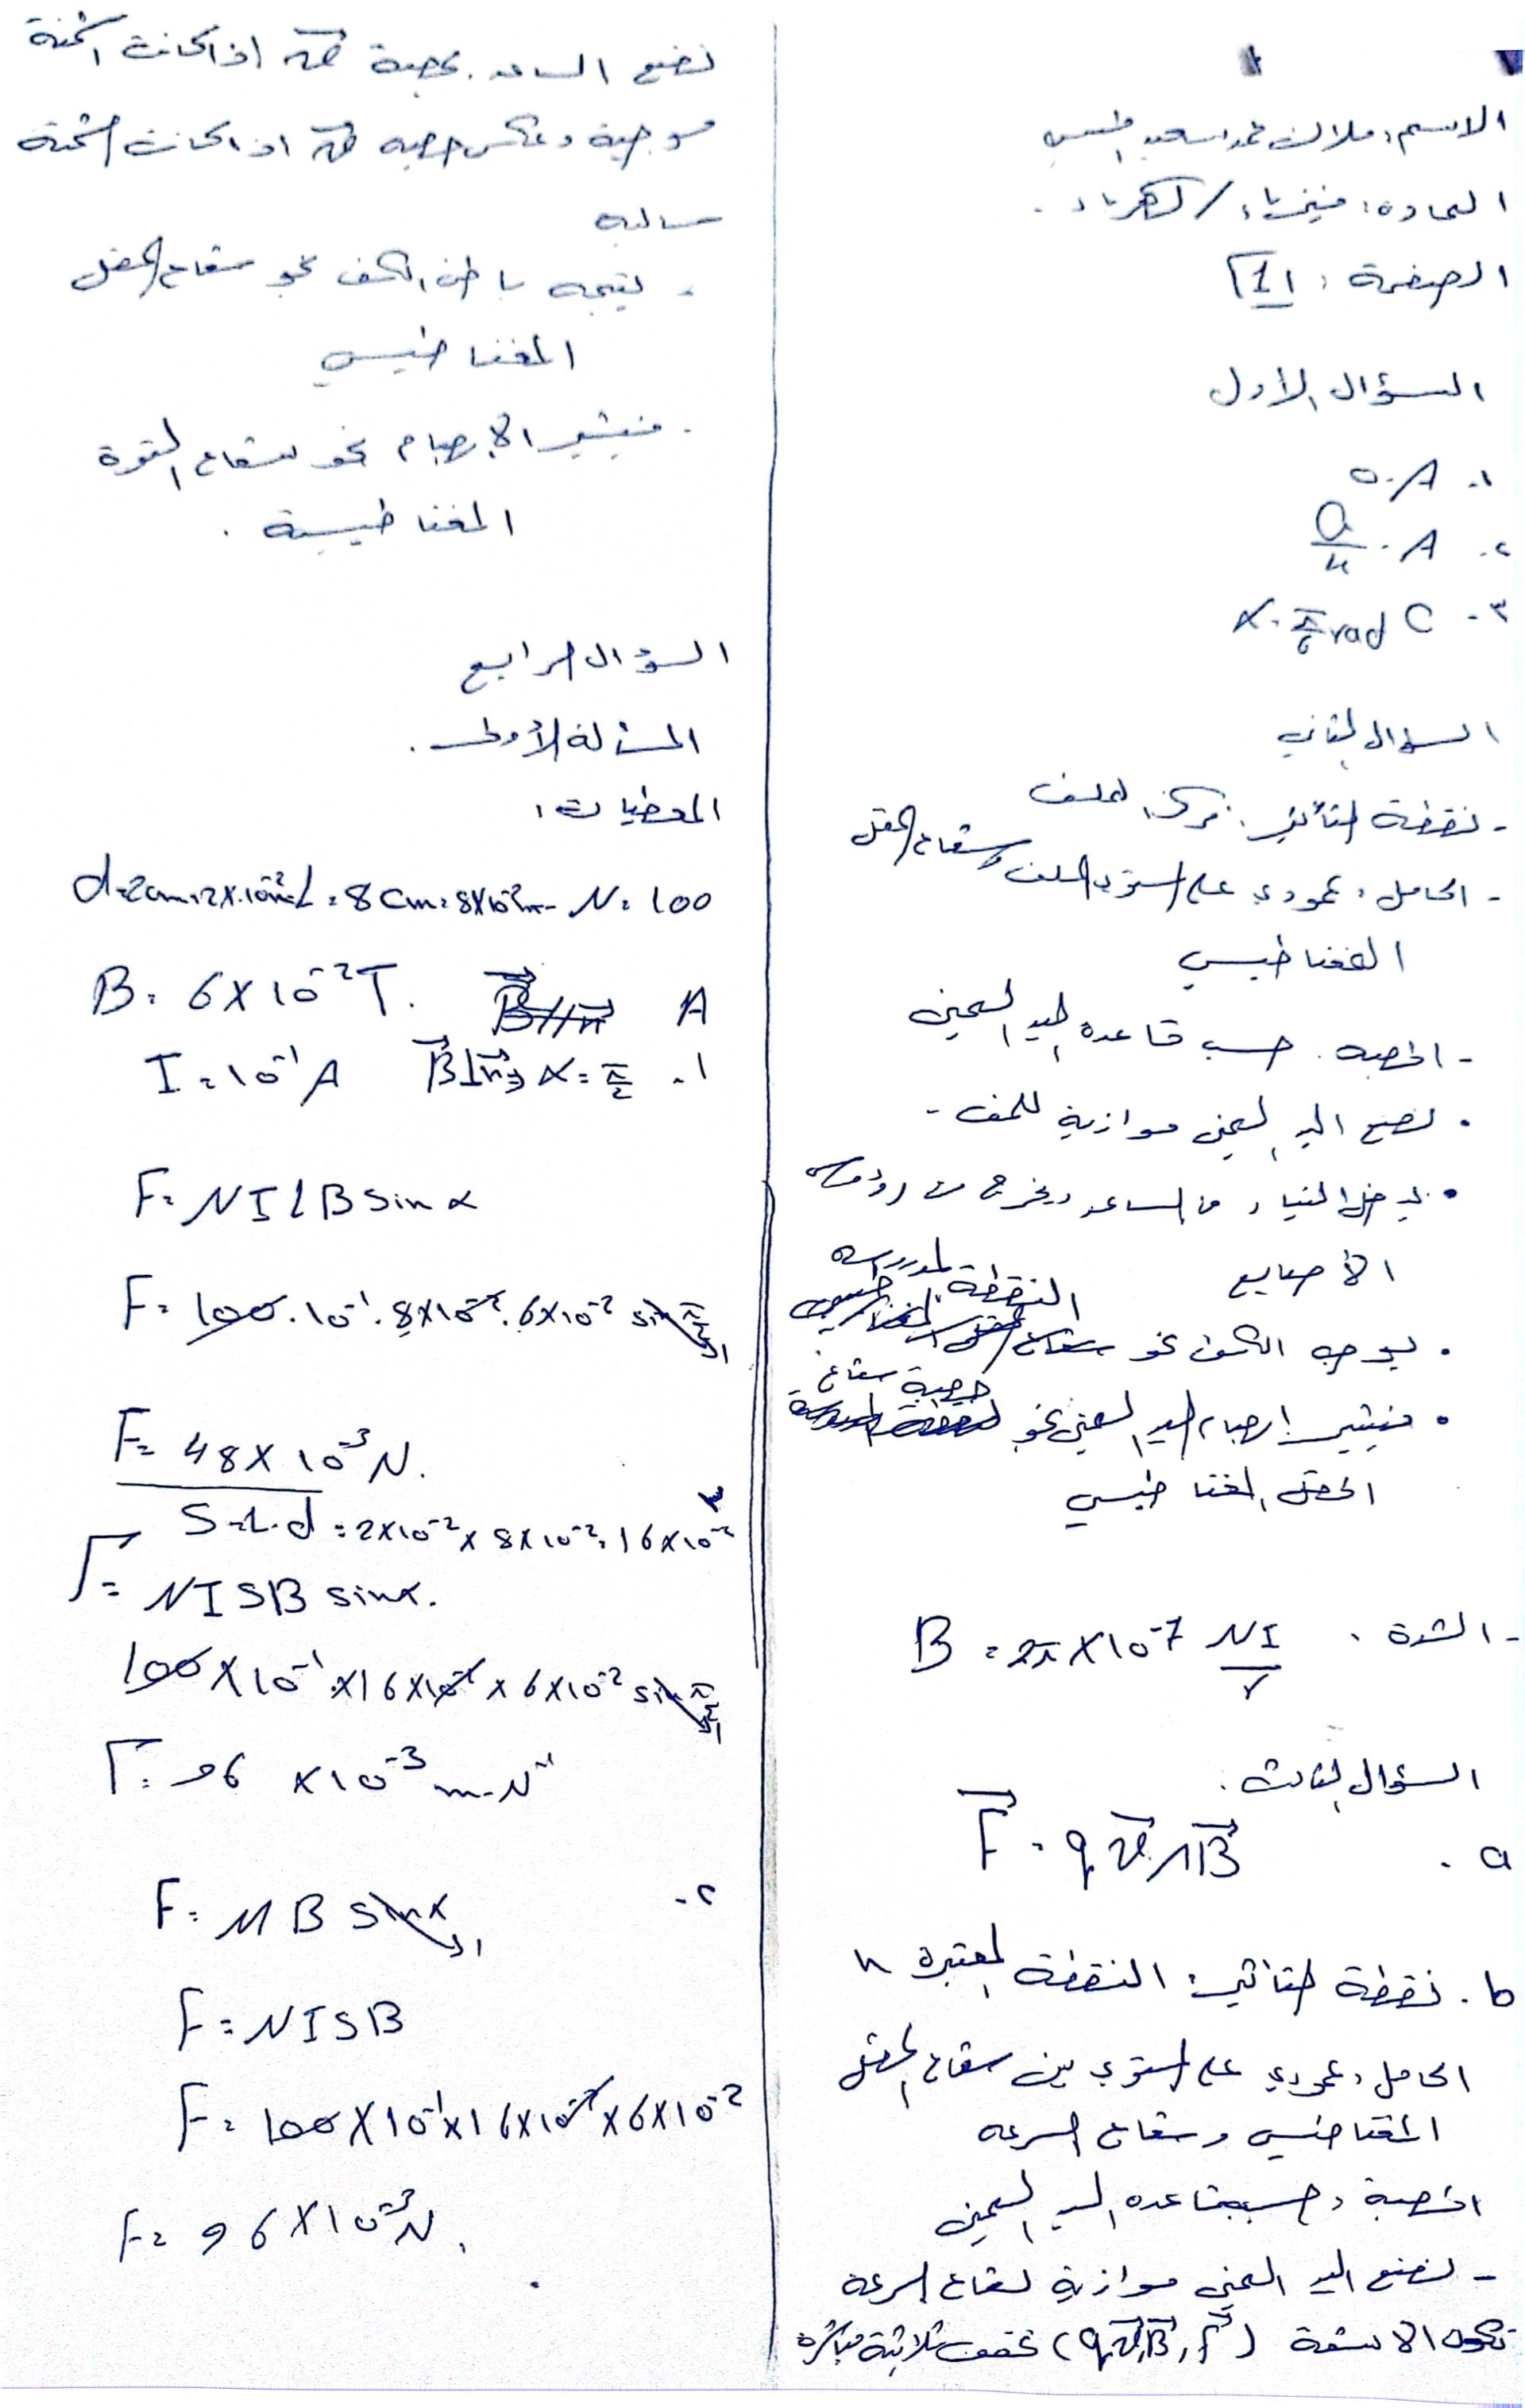 الاسم: ملاك محمد سعيد
المادة: فيزياء / كهرباء.
الصفحة: 1
السؤال الأول
١. A. ٥
٢. A. a/4
٣. C α. π/6 rad
السؤال الثاني
- نقطة التأثير: مركز الملف
- الحامل: عمودي على مستوي الملف
المغناطيسي
- الجهة: حسب قاعدة اليد اليمنى
• نضع اليد اليمنى موازية للملف -
• يدخل التيار من الساعد ويخرج من رؤوس
الأصابع
• يوجه الكف نحو النقطة المدروسة
• فيشير إبهام اليد اليمنى نحو جهة شعاع
الحقل المغناطيسي
- الشدة: B = 2π×10⁻⁷ NI/r
السؤال الثالث:
a. F⃗ = q v⃗ ∧ B⃗
b. نقطة التأثير: النقطة المعتبرة
الحامل: عمودي على المستوي بين شعاع الحقل
المغناطيسي وشعاع السرعة
الجهة: حسب قاعدة اليد اليمنى
- نضع اليد اليمنى موازية لشعاع السرعة
تكون الأشعة (q v⃗, B⃗, F⃗) تحقق ثلاثية مباشرة
نضع الساعد بجهة v⃗ إذا كانت الشحنة
موجبة وعكس جهة v⃗ إذا كانت الشحنة
سالبة
- يتجه باطن الكف نحو شعاع الحقل
المغناطيسي
. فيشير الإبهام نحو شعاع القوة
المغناطيسية.
السؤال الرابع
المسألة الأولى.
المعطيات:
d = 2cm = 2×10⁻²m L = 8cm = 8×10⁻²m - N = 100
B = 6×10⁻²T. A
I = 10⁻¹A B⃗⊥n⃗ ⇒ α = π/2 ١.
F = NILB sin α
F = 100·10⁻¹·8×10⁻²·6×10⁻² sin π/2
F = 48×10⁻³N.
S = L.d = 2×10⁻² × 8×10⁻² = 16×10⁻⁴
Γ = NISB sin α.
100×10⁻¹×16×10⁻⁴×6×10⁻² sin π/2
Γ = 96×10⁻³ m.N
٢. F = MB sin α
F = NISB
F = 100×10⁻¹×16×10⁻⁴×6×10⁻²
F = 96×10⁻³N.